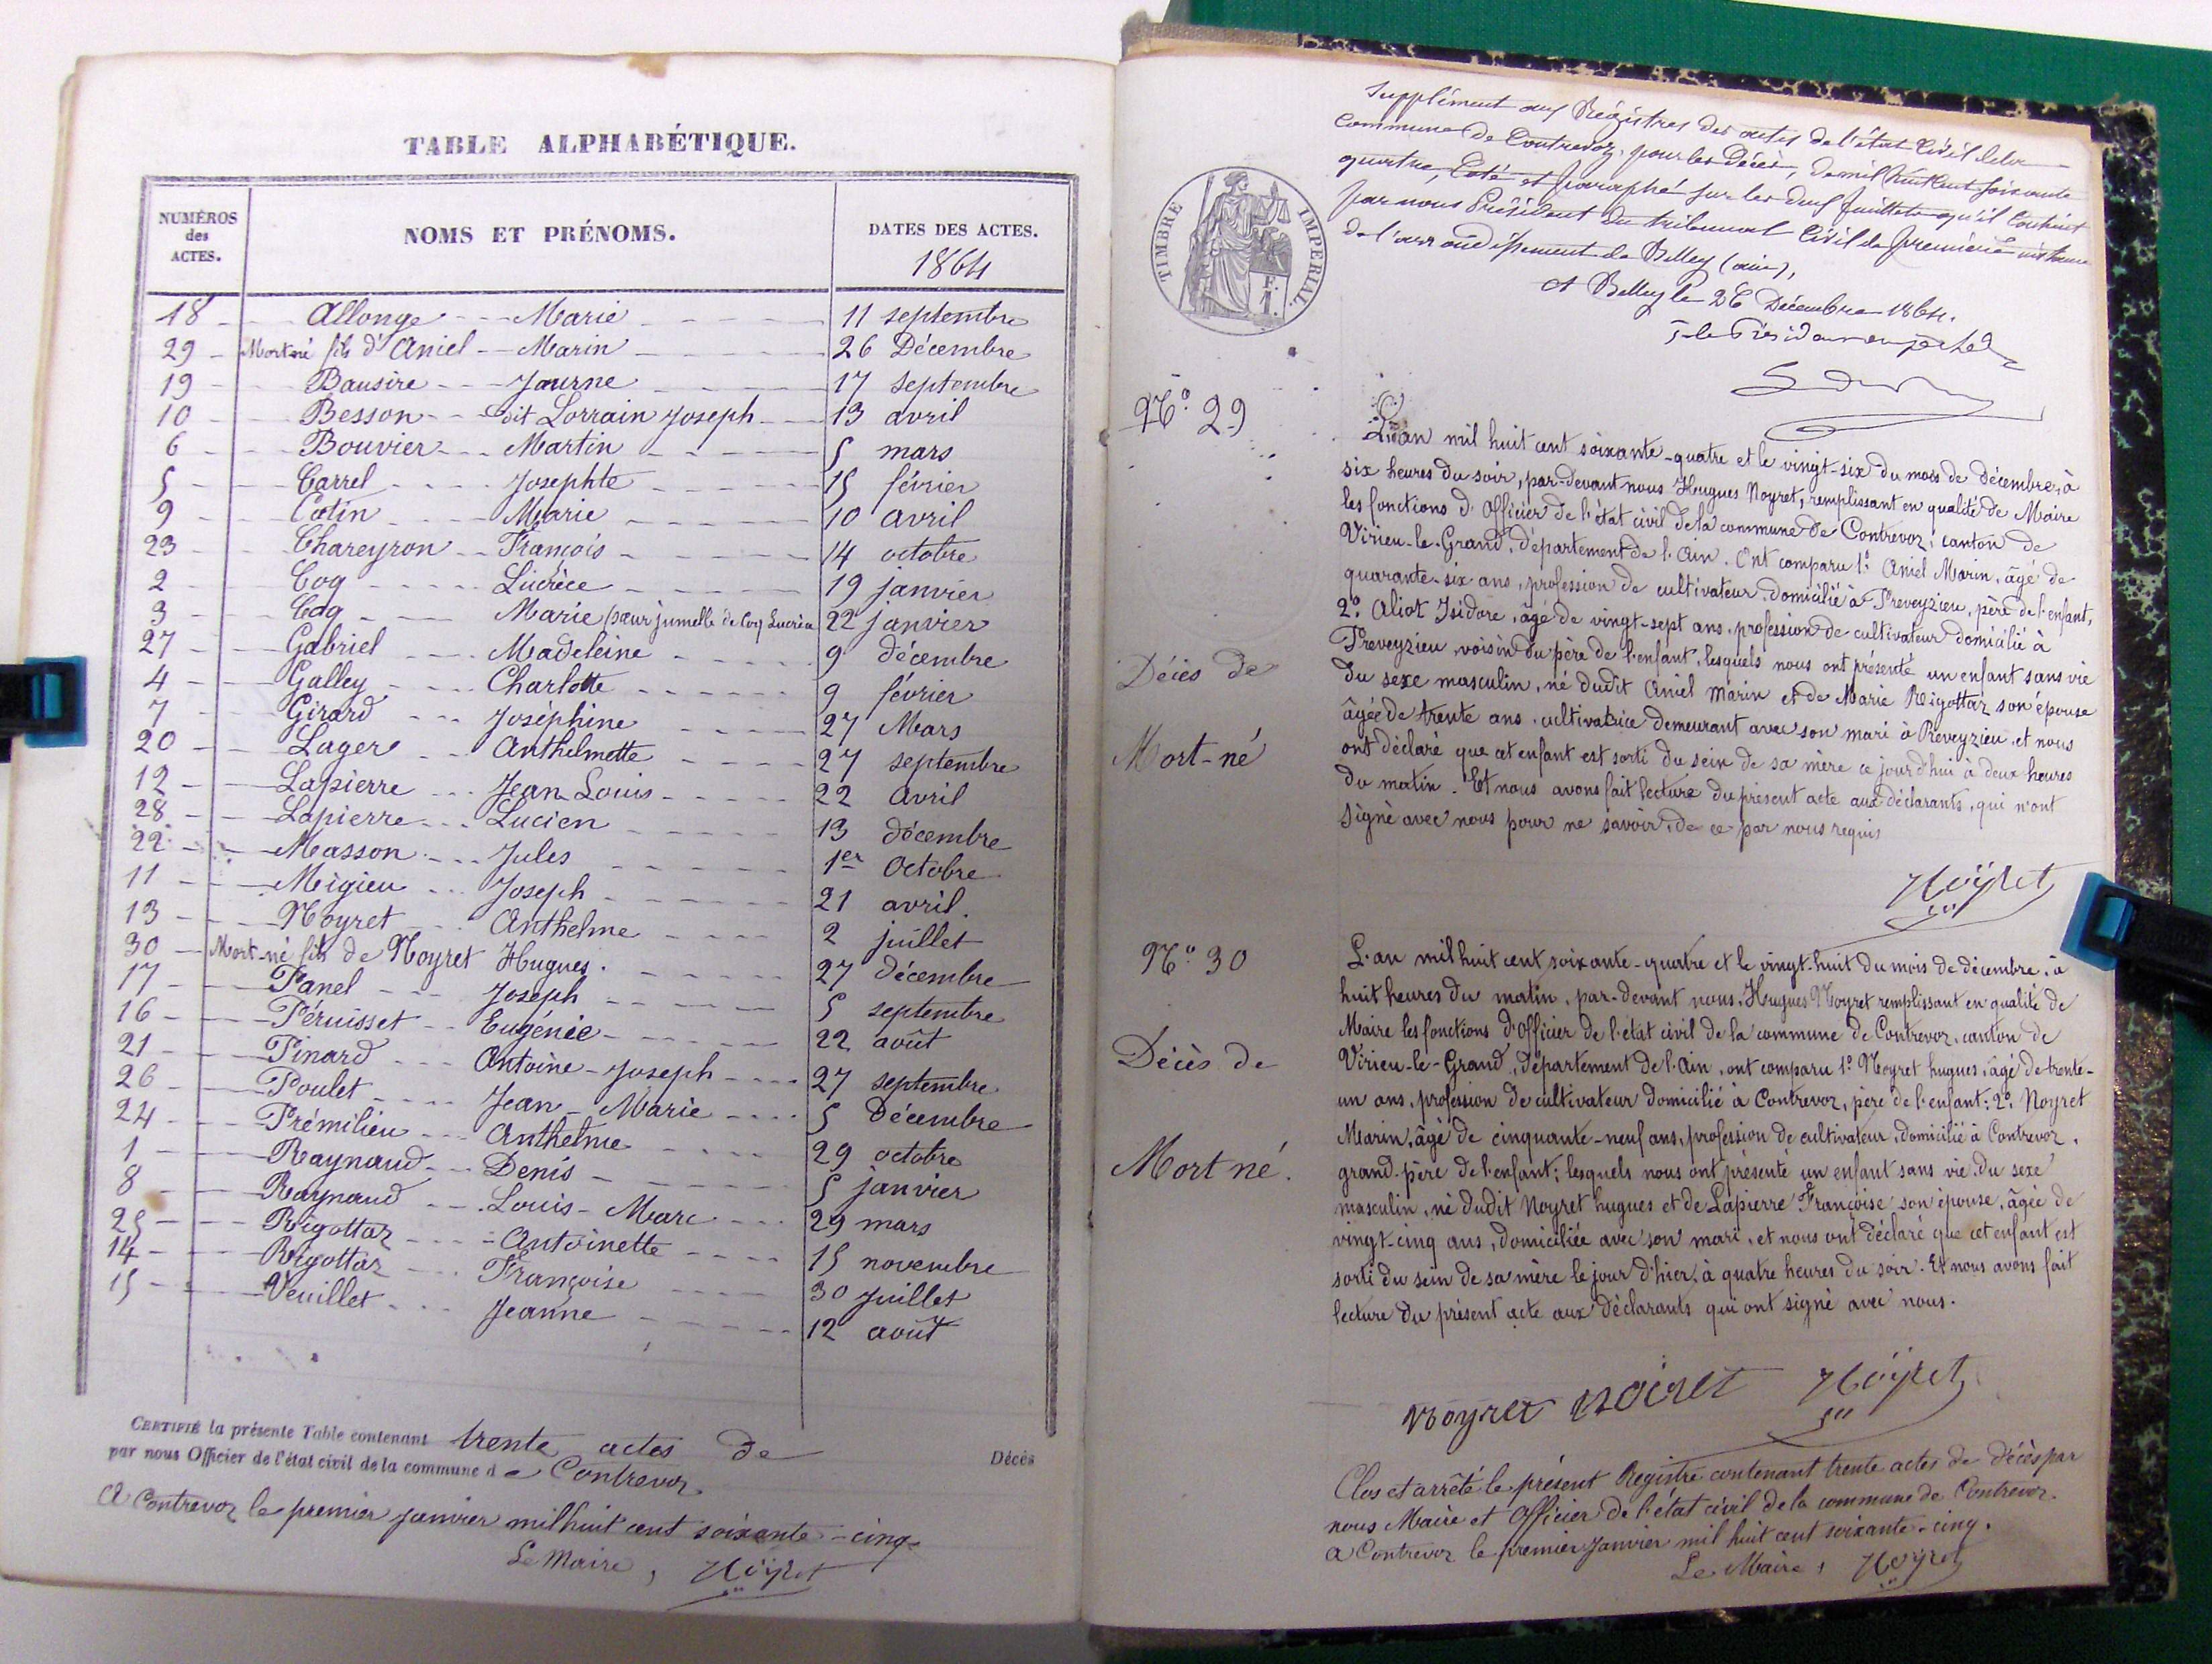 TABLE ALPHABÉTIQUE.
NUMÉROS des ACTES. NOMS ET PRÉNOMS. DATES DES ACTES.
1864
18 Allonge Marie 11 septembre
29 Mort né fils d'Aniel Marin 26 Décembre
19 Bausire Journe 17 septembre
10 Besson dit Lorrain Joseph 13 avril
6 Bouvier Martin 5 mars
5 Carrel Josephte 15 février
9 Catin Marie 10 avril
23 Chareyron François 14 octobre
2 Coq Lucrèce 19 janvier
3 Coq Marie (sœur jumelle de Coq Lucrèce 22 janvier
27 Gabriel Madeleine 9 décembre
4 Galley Charlotte 9 février
7 Girard Joséphine 27 Mars
20 Lager Anthelmette 27 septembre
12 Lapierre Jean Louis 22 avril
28 Lapierre Lucien 13 décembre
22 Masson Jules 1er Octobre
11 Migieu Joseph 21 avril.
13 Noyret Anthelme 2 juillet
30 Mort-né fils de Noyret Hugues. 27 décembre
17 Panel Joseph 5 septembre
16 Péruisset Eugénie 22 août
21 Pinard Antoine-Joseph 27 septembre
26 Poulet Jean-Marie 5 Décembre
24 Prémilieu Anthelme 29 octobre
1 Raynaud Denis 5 janvier
8 Raynaud Louis-Marc 29 mars
25 Rigottaz Antoinette 15 novembre
14 Rigottaz Françoise 30 juillet
15 Veuillet Jeanne 12 août
CERTIFIÉ la présente Table contenant trente actes de Décès
par nous Officier de l'état civil de la commune de Contrevoz
A Contrevoz le premier janvier mil huit cent soixante-cinq
Le Maire, Noyret
Supplément aux Régistres des actes de l'état Civil de la
Commune de Contrevoz, pour les Décès, de mil huit Cent soixante
quatre, Coté et paraphé sur les deux feuillets qu'il Contient
par nous Président du tribunal Civil de première instance
de l'arrondissement de Belley (ain),
A Belley le 26 Décembre 1864.
TIMBRE IMPERIAL.
No 29
L'an mil huit cent soixante-quatre et le vingt-six du mois de décembre, à
six heures du soir, par-devant nous Hugues Noyret, remplissant en qualité de Maire
les fonctions d'Officier de l'état civil de la commune de Contrevoz, canton de
Virieu-le-Grand, département de l'Ain. Ont comparu 1o Aniel Marin, âgé de
quarante-six ans, profession de cultivateur domicilié à Preveyzieu, père de l'enfant,
2o Aliot Isidore, âgé de vingt-sept ans, profession de cultivateur domicilié à
Preveyzieu, voisin du père de l'enfant, lesquels nous ont présenté un enfant sans vie
du sexe masculin, né dudit Aniel Marin et de Marie Rigottaz son épouse
âgée de trente ans, cultivatrice demeurant avec son mari à Preveyzieu, et nous
ont déclaré que cet enfant est sorti du sein de sa mère ce jourd'hui à deux heures
du matin. Et nous avons fait lecture du présent acte aux déclarants, qui n'ont
signé avec nous pour ne savoir, de ce par nous requis
Décès de
Mort-né
Noyret
No 30
L'an mil huit cent soixante-quatre et le vingt-huit du mois de décembre, à
huit heures du matin, par-devant nous Hugues Noyret remplissant en qualité de
Maire les fonctions d'Officier de l'état civil de la commune de Contrevoz, canton de
Virieu-le-Grand, département de l'Ain, ont comparu 1o Noyret hugues, âgé de trente-
un ans, profession de cultivateur domicilié à Contrevoz, père de l'enfant; 2o Noyret
Marin, âgé de cinquante-neuf ans, profession de cultivateur, domicilié à Contrevoz,
grand-père de l'enfant; lesquels nous ont présenté un enfant sans vie du sexe
masculin, né dudit Noyret hugues et de Lapierre Françoise son épouse, âgée de
vingt-cinq ans, domiciliée avec son mari, et nous ont déclaré que cet enfant est
sorti du sein de sa mère le jour d'hier à quatre heures du soir. Et nous avons fait
lecture du présent acte aux déclarants qui ont signé avec nous.
Décès de
Mort né.
Noyret noiret Noyret
Clos et arrêté le présent Registre contenant trente actes de décès par
nous Maire et Officier de l'état civil de la commune de Contrevoz.
A Contrevoz le premier Janvier mil huit cent soixante-cinq.
Le Maire, Noyret